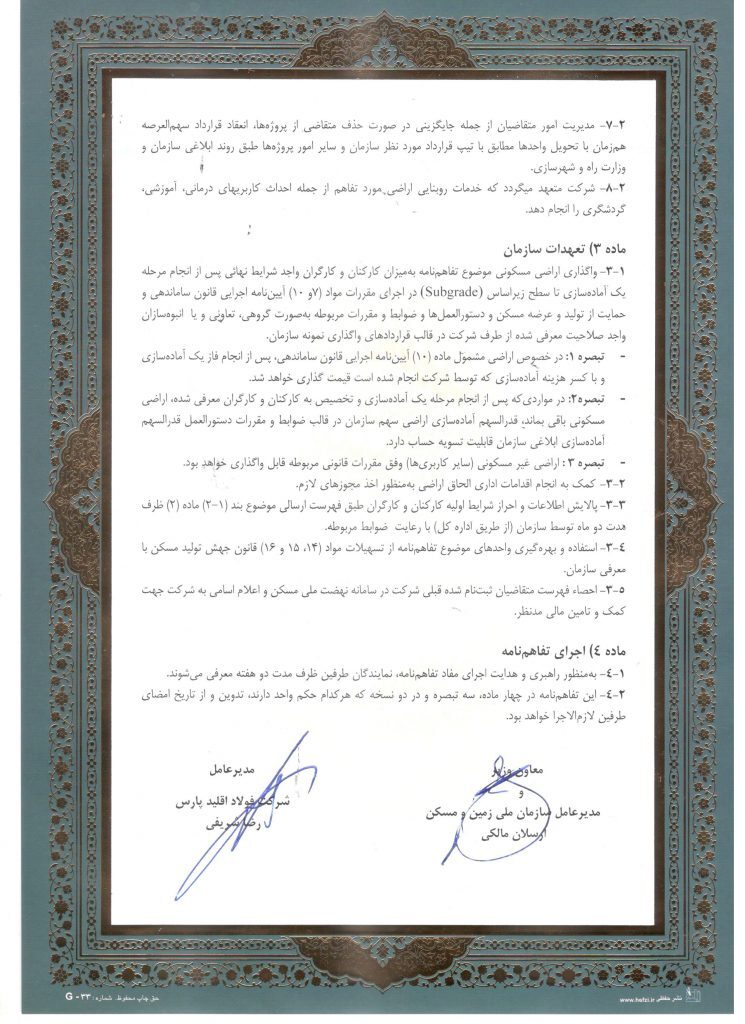 ۷-۲- مدیریت امور متقاضیان از جمله جایگزینی در صورت حذف متقاضی از پروژه‌ها، انعقاد قرارداد سهم‌العرصه
هم‌زمان با تحویل واحدها مطابق با تیپ قرارداد مورد نظر سازمان و سایر امور پروژه‌ها طبق روند ابلاغی سازمان و
وزارت راه و شهرسازی.
۸-۲- شرکت متعهد میگردد که خدمات روبنایی اراضی مورد تفاهم از جمله احداث کاربریهای درمانی، آموزشی،
گردشگری را انجام دهد.
ماده ۳) تعهدات سازمان
۳-۱- واگذاری اراضی مسکونی موضوع تفاهم‌نامه به‌میزان کارکنان و کارگران واجد شرایط نهائی پس از انجام مرحله
یک آماده‌سازی تا سطح زیراساس (Subgrade) در اجرای مقررات مواد (۷و ۱۰) آیین‌نامه اجرایی قانون ساماندهی و
حمایت از تولید و عرضه مسکن و دستورالعمل‌ها و ضوابط و مقررات مربوطه به‌صورت گروهی، تعاونی و یا انبوه‌سازان
واجد صلاحیت معرفی شده از طرف شرکت در قالب قراردادهای واگذاری نمونه سازمان.
- تبصره ۱: در خصوص اراضی مشمول ماده (۱۰) آیین‌نامه اجرایی قانون ساماندهی، پس از انجام فاز یک آماده‌سازی
و با کسر هزینه آماده‌سازی که توسط شرکت انجام شده است قیمت گذاری خواهد شد.
- تبصره۲: در مواردی‌که پس از انجام مرحله یک آماده‌سازی و تخصیص به کارکنان و کارگران معرفی شده، اراضی
مسکونی باقی بماند، قدرالسهم آماده‌سازی اراضی سهم سازمان در قالب ضوابط و مقررات دستورالعمل قدرالسهم
آماده‌سازی ابلاغی سازمان قابلیت تسویه حساب دارد.
- تبصره ۳ : اراضی غیر مسکونی (سایر کاربری‌ها) وفق مقررات قانونی مربوطه قابل واگذاری خواهد بود.
۳-۲- کمک به انجام اقدامات اداری الحاق اراضی به‌منظور اخذ مجوزهای لازم.
۳-۳- پالایش اطلاعات و احراز شرایط اولیه کارکنان و کارگران طبق فهرست ارسالی موضوع بند (۱-۲) ماده (۲) ظرف
مدت دو ماه توسط سازمان (از طریق اداره کل) با رعایت ضوابط مربوطه.
۳-۴- استفاده و بهره‌گیری واحدهای موضوع تفاهم‌نامه از تسهیلات مواد (۱۴، ۱۵ و ۱۶) قانون جهش تولید مسکن با
معرفی سازمان.
۳-۵- احصاء فهرست متقاضیان ثبت‌نام شده قبلی شرکت در سامانه نهضت ملی مسکن و اعلام اسامی به شرکت جهت
کمک و تامین مالی مدنظر.
ماده ۴) اجرای تفاهم‌نامه
۴-۱- به‌منظور راهبری و هدایت اجرای مفاد تفاهم‌نامه، نمایندگان طرفین ظرف مدت دو هفته معرفی می‌شوند.
۴-۲- این تفاهم‌نامه در چهار ماده، سه تبصره و در دو نسخه که هرکدام حکم واحد دارند، تدوین و از تاریخ امضای
طرفین لازم‌الاجرا خواهد بود.
معاون وزیر
و
مدیرعامل سازمان ملی زمین و مسکن
ارسلان مالکی
مدیرعامل
شرکت فولاد اقلید پارس
رضا شریفی
نشر حفظی www.hefzi.ir
حق چاپ محفوظ. شماره: G - ۳۳